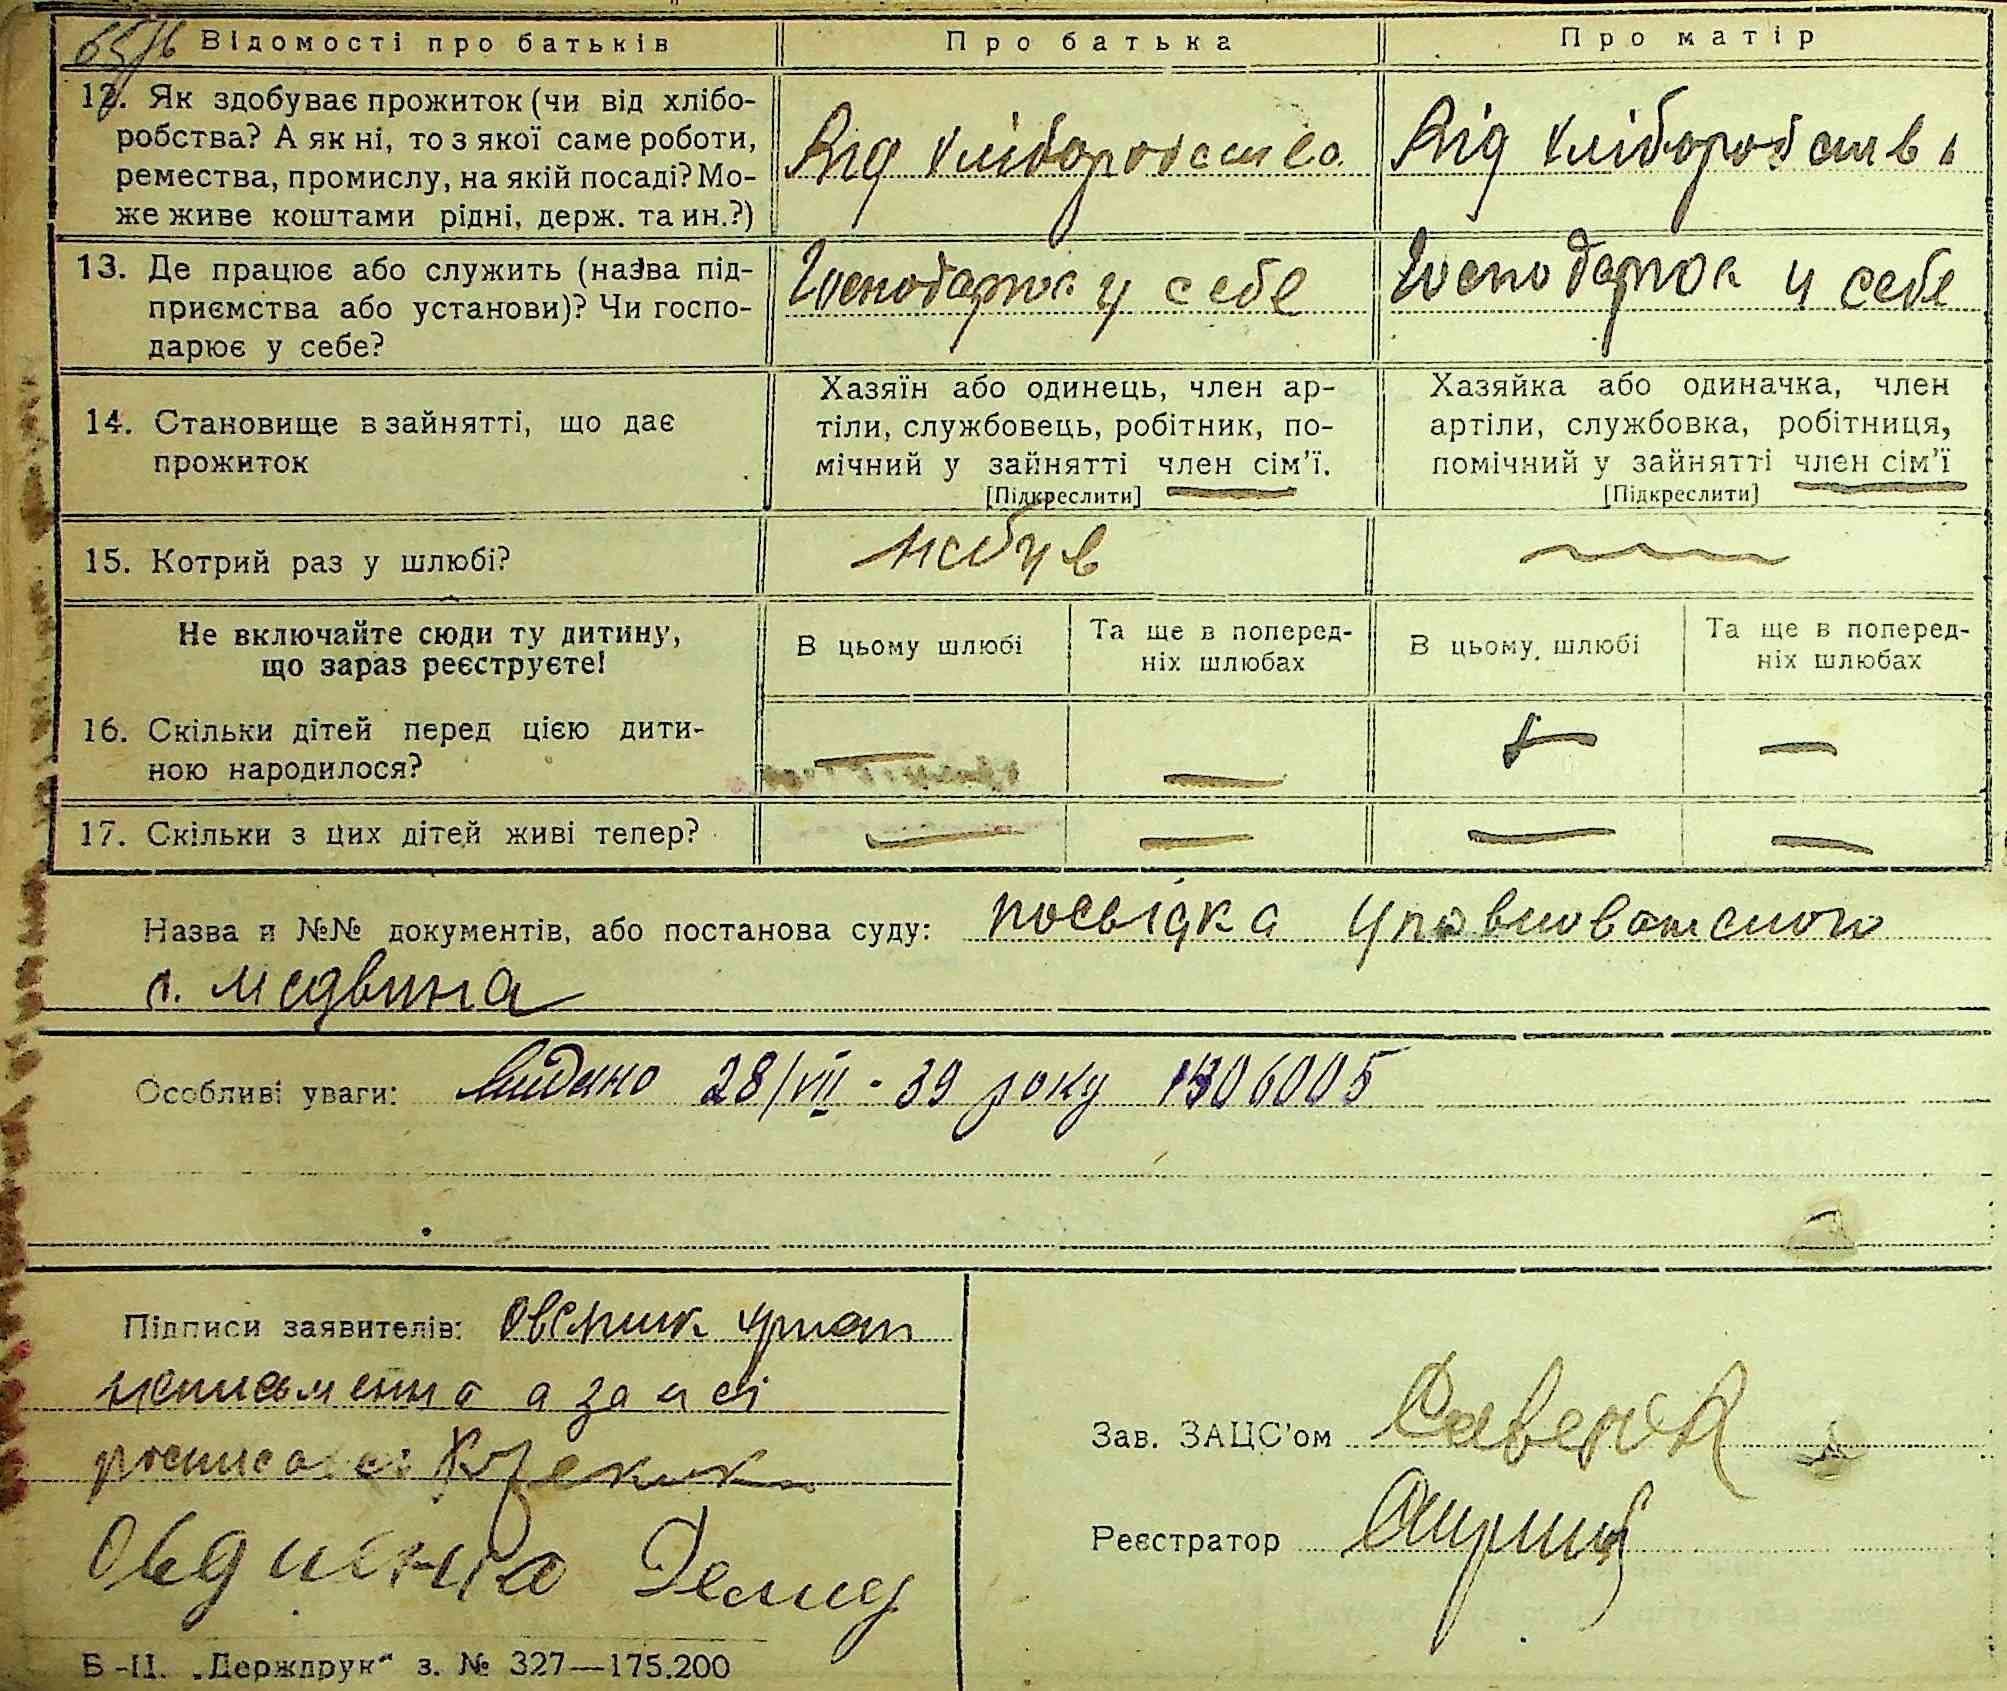 Відомості про батьків Про батька Про матір
12. Як здобуває прожиток (чи від хлібо-
робства? А як ні, то з якої саме роботи,
ремества, промислу, на якій посаді? Мо-
же живе коштами рідні, держ. та ин.?)
Від хліборобства Від хліборобства
13. Де працює або служить (назва під-
приємства або установи)? Чи госпо-
дарює у себе?
Господарює у себе Господарює у себе
14. Становище в зайнятті, що дає
прожиток
Хазяїн або одинець, член ар-
тіли, службовець, робітник, по-
мічний у зайнятті член сім'ї.
[Підкреслити]
Хазяйка або одиначка, член
артіли, службовка, робітниця,
помічний у зайнятті член сім'ї
[Підкреслити]
15. Котрий раз у шлюбі? небув
Не включайте сюди ту дитину,
що зараз реєструєте!
В цьому шлюбі
Та ще в поперед-
ніх шлюбах
В цьому шлюбі
Та ще в поперед-
ніх шлюбах
16. Скільки дітей перед цією дити-
ною народилося?
17. Скільки з цих дітей живі тепер?
Назва й №№ документів, або постанова суду: посвідка уповноваженого
с. медвина
Особливі уваги: Видано 28/VII - 39 року 1306005
Підписи заявителів:
неписьменна а за неї
росписався
Овдиенко Демид
Зав. ЗАЦС'ом
Реєстратор
Б-ІІ. „Держдрук“ з. № 327—175.200